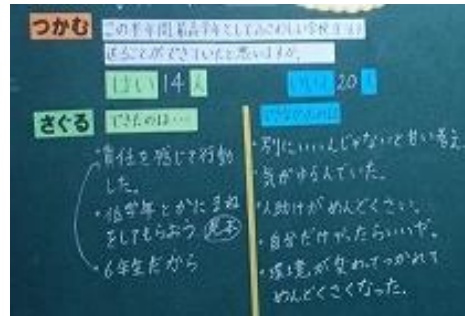 つかむ
この半年間、最高学年としてふさわしい学校生活を
送ることができていたと思いますか。
はい 14人
いいえ 20人
さぐる
できたのは…
・責任を感じて行動
した。
・低学年とかにまね
をしてもらおう 見本
・6年生だから
・別にいいんじゃないと甘い考え
・気がゆるんでいた。
・人助けがめんどくさい。
・自分だけだったらいいや。
・環境が変わってつかれて
めんどくさくなった。